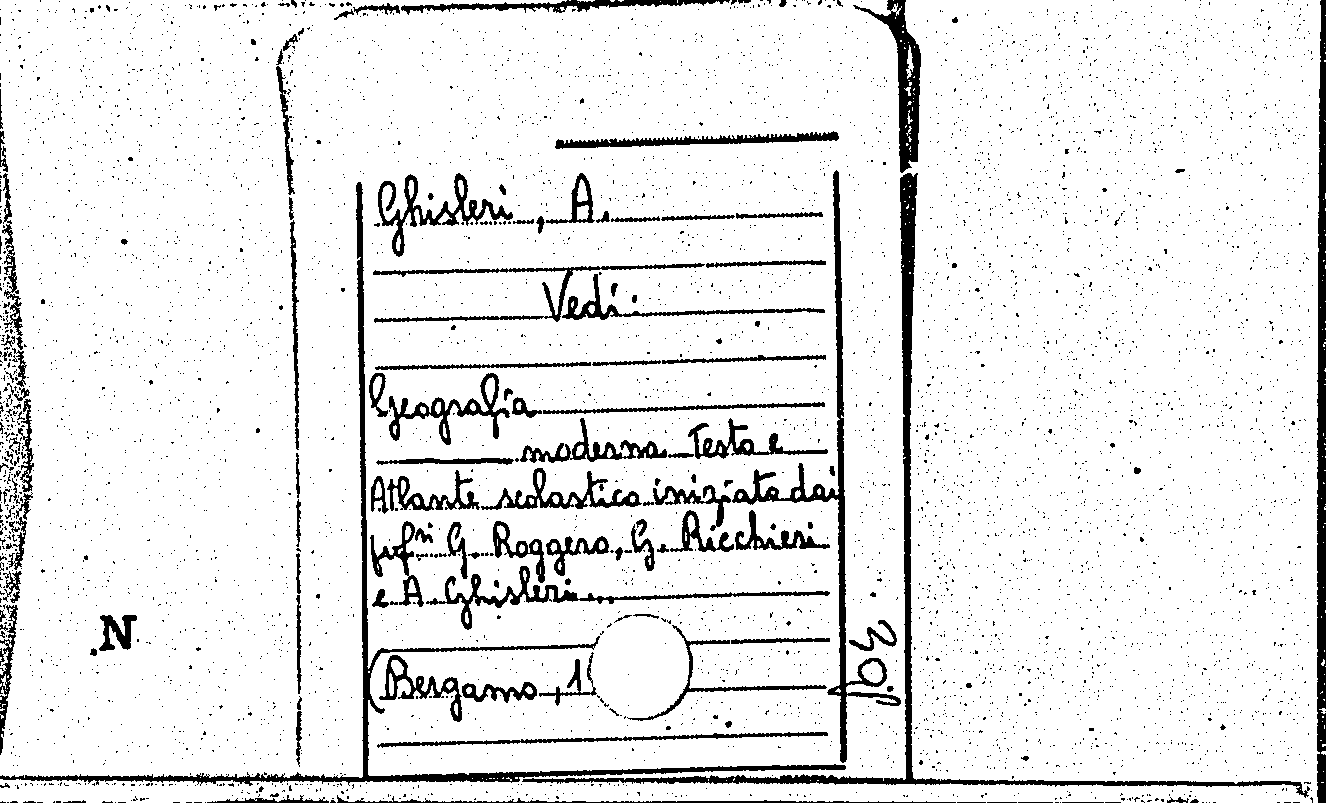 Ghisleri, A.
Vedi:
Geografia
moderna. Testo e
Atlante scolastico iniziato dai
prof.ri G. Roggero, G. Ricchieri
e A. Ghisleri...
(Bergamo, 1
N